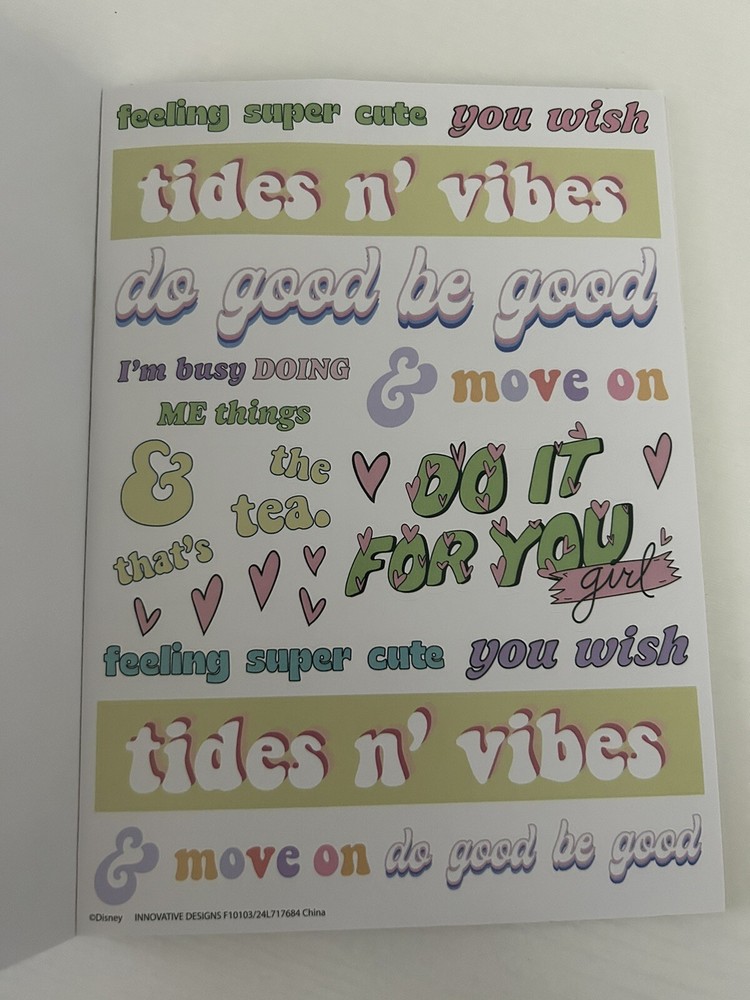 feeling super cute you wish
tides n' vibes
do good be good
I'm busy DOING
ME things
& move on
&
the
tea.
that's
DO IT
FOR YOU
girl
feeling super cute you wish
tides n' vibes
& move on do good be good
©Disney INNOVATIVE DESIGNS F10103/24L717684 China